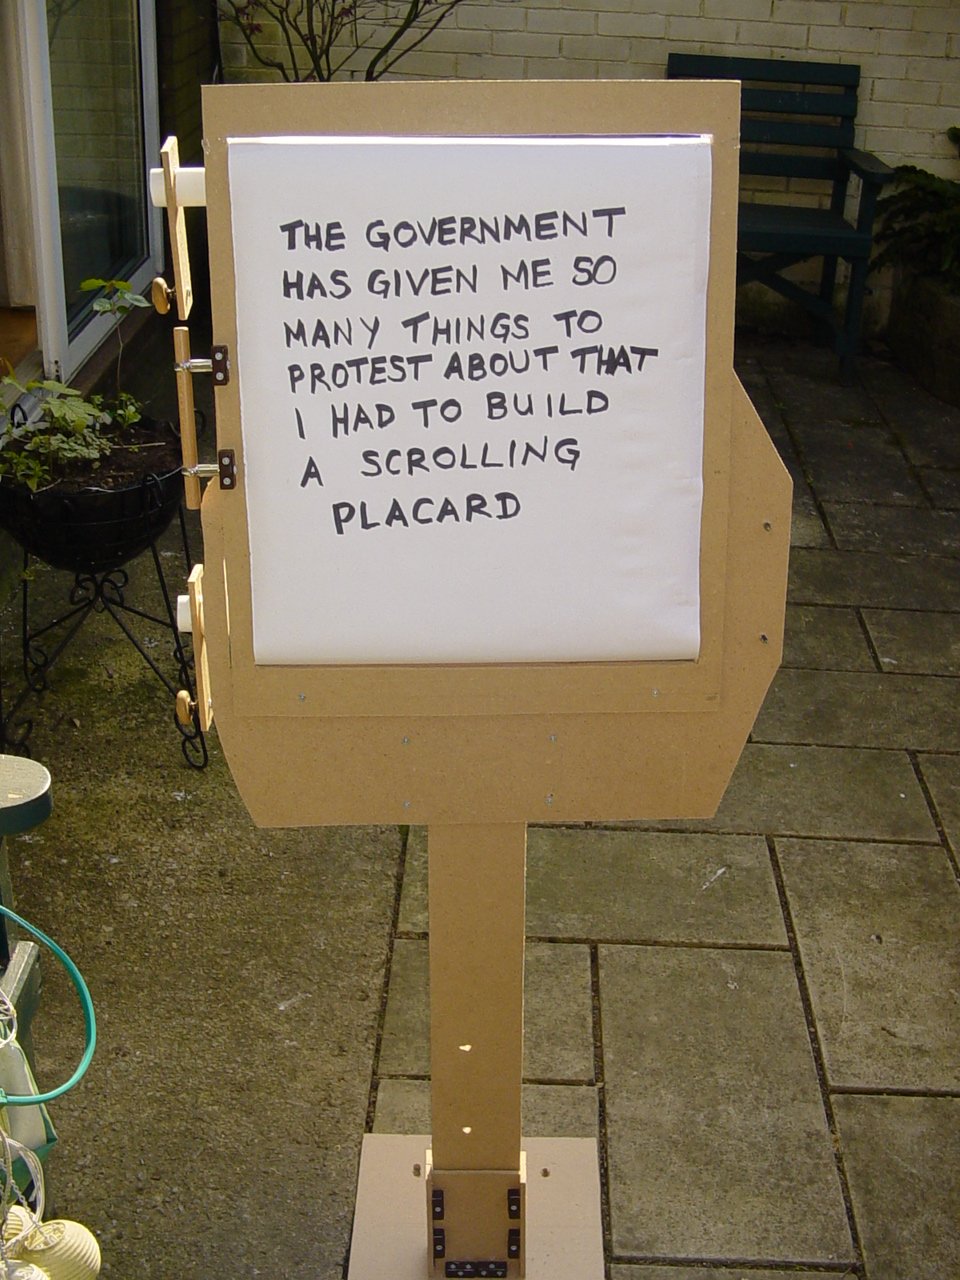 THE GOVERNMENT
HAS GIVEN ME SO
MANY THINGS TO
PROTEST ABOUT THAT
I HAD TO BUILD
A SCROLLING
PLACARD